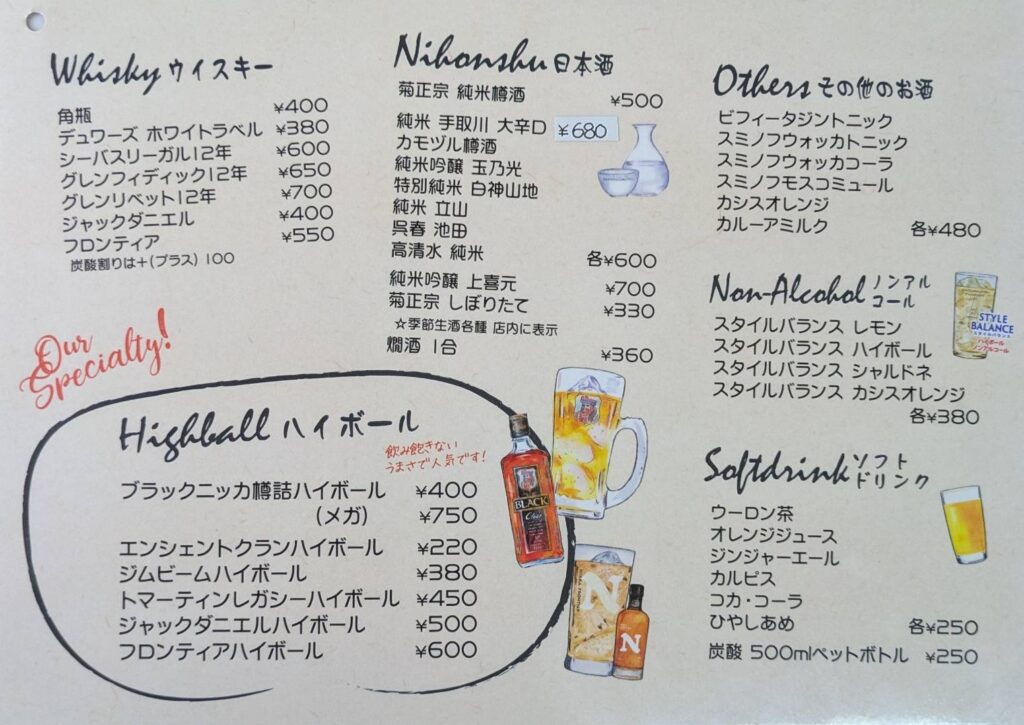 Whisky ウイスキー
角瓶 ¥400
デュワーズ ホワイトラベル ¥380
シーバスリーガル12年 ¥600
グレンフィディック12年 ¥650
グレンリベット12年 ¥700
ジャックダニエル ¥400
フロンティア ¥550
炭酸割りは+(プラス) 100
Nihonshu 日本酒
菊正宗 純米樽酒 ¥500
純米 手取川 大辛口 ¥680
カモヅル樽酒
純米吟醸 玉乃光
特別純米 白神山地
純米 立山
呉春 池田
高清水 純米 各¥600
純米吟醸 上喜元 ¥700
菊正宗 しぼりたて ¥330
☆季節生酒各種 店内に表示
燗酒 1合 ¥360
Others その他のお酒
ビフィータジントニック
スミノフウォッカトニック
スミノフウォッカコーラ
スミノフモスコミュール
カシスオレンジ
カルーアミルク 各¥480
Non-Alcohol ノンアル
コール
スタイルバランス レモン
スタイルバランス ハイボール
スタイルバランス シャルドネ
スタイルバランス カシスオレンジ
各¥380
STYLE
BALANCE
スタイルバランス
ハイボール
ノンアルコール
Softdrink ソフト
ドリンク
ウーロン茶
オレンジジュース
ジンジャーエール
カルピス
コカ・コーラ
ひやしあめ 各¥250
炭酸 500mlペットボトル ¥250
Our
Specialty!
Highball ハイボール
飲み飽きない
うまさで人気です!
ブラックニッカ樽詰ハイボール ¥400
(メガ) ¥750
エンシェントクランハイボール ¥220
ジムビームハイボール ¥380
トマーティンレガシーハイボール ¥450
ジャックダニエルハイボール ¥500
フロンティアハイボール ¥600
BLACK
Clear
N
N